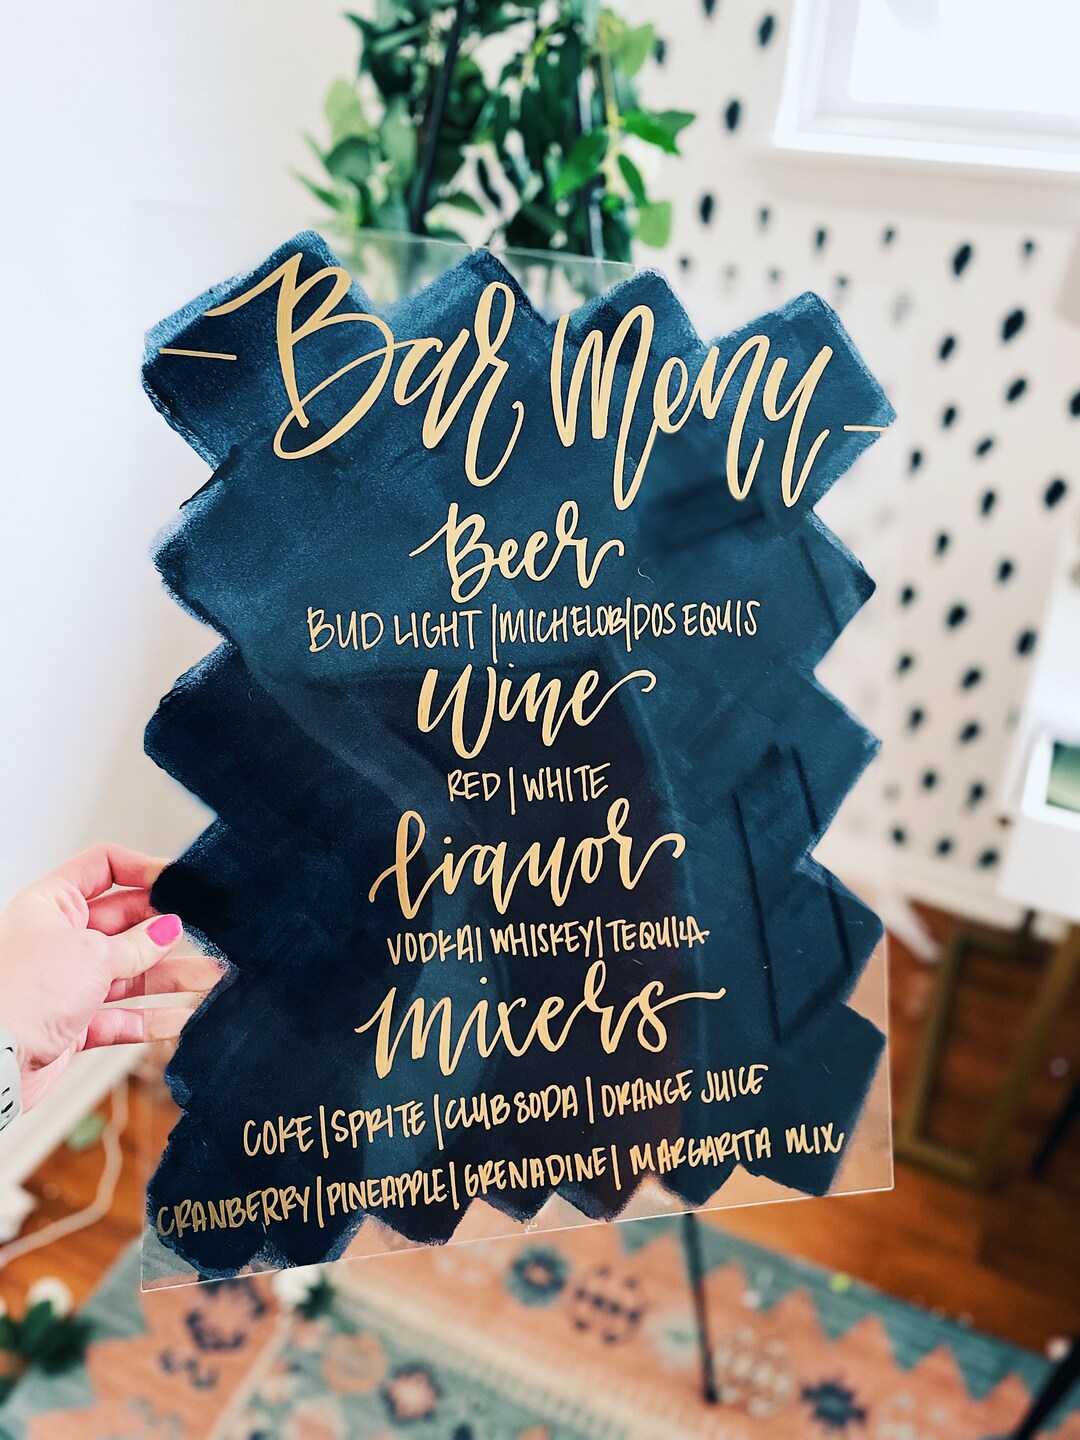 Bar Menu
Beer
BUD LIGHT | MICHELOB | DOS EQUIS
Wine
RED | WHITE
liquor
VODKA | WHISKEY | TEQUILA
mixers
COKE | SPRITE | CLUB SODA | ORANGE JUICE
CRANBERRY | PINEAPPLE | GRENADINE | MARGARITA MIX